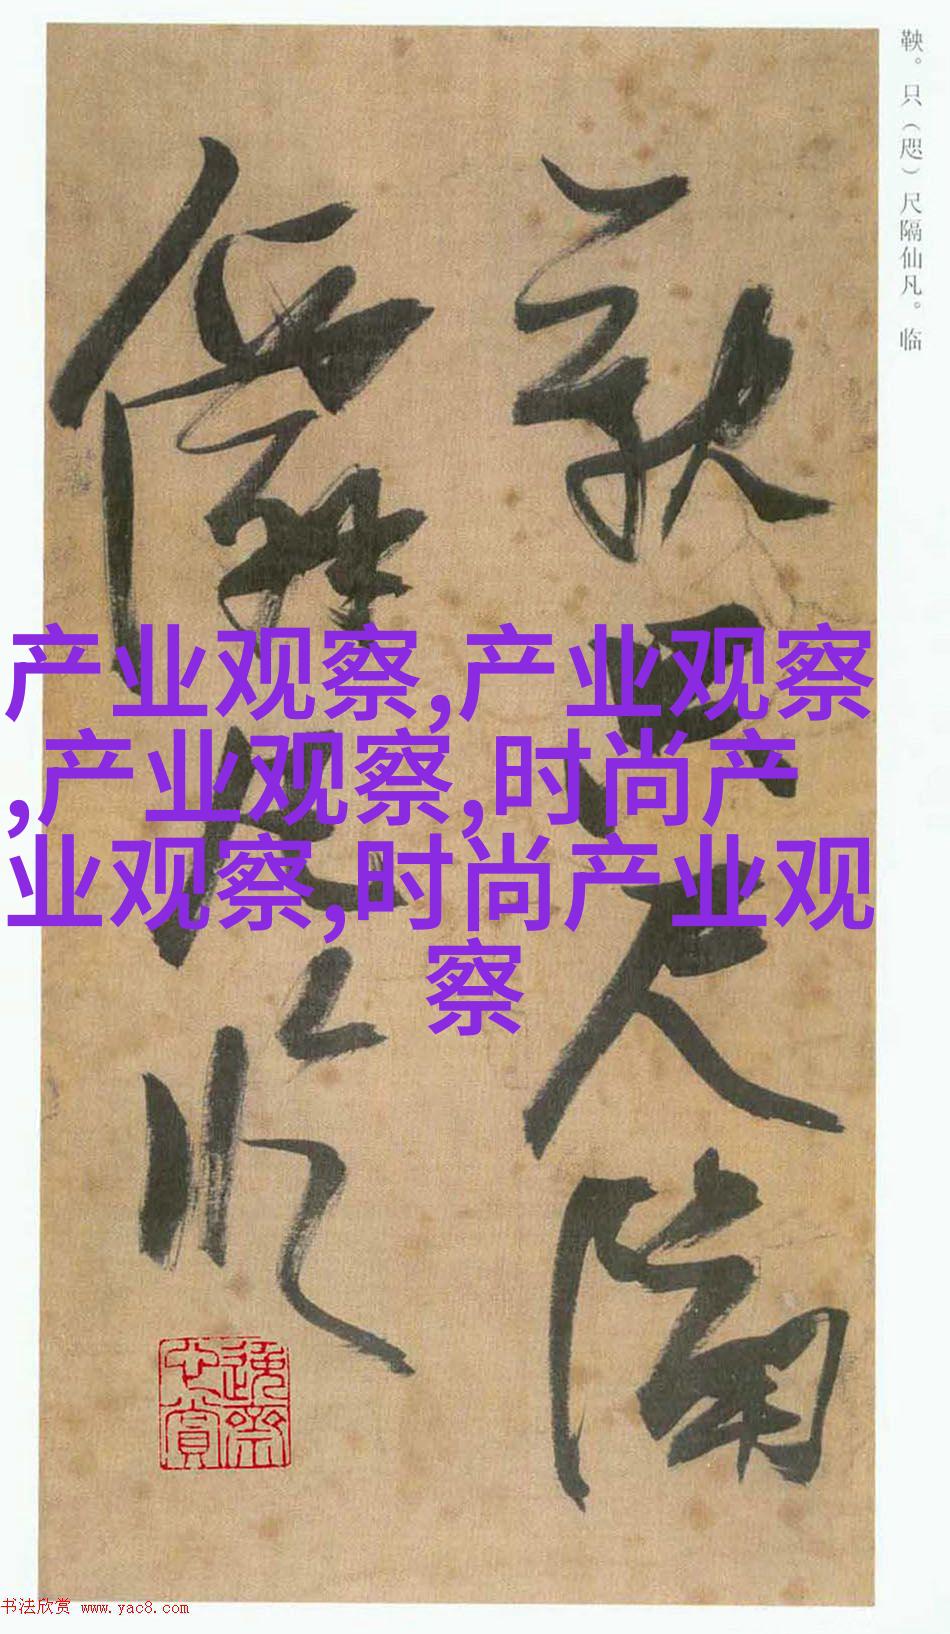 鞅。只（咫）尺隔仙凡。临
鞅只尺隔
僊凡临
产业观察,产业观察
,产业观察,时尚产
业观察,时尚产业观
察
书法欣赏 www.yac8.com